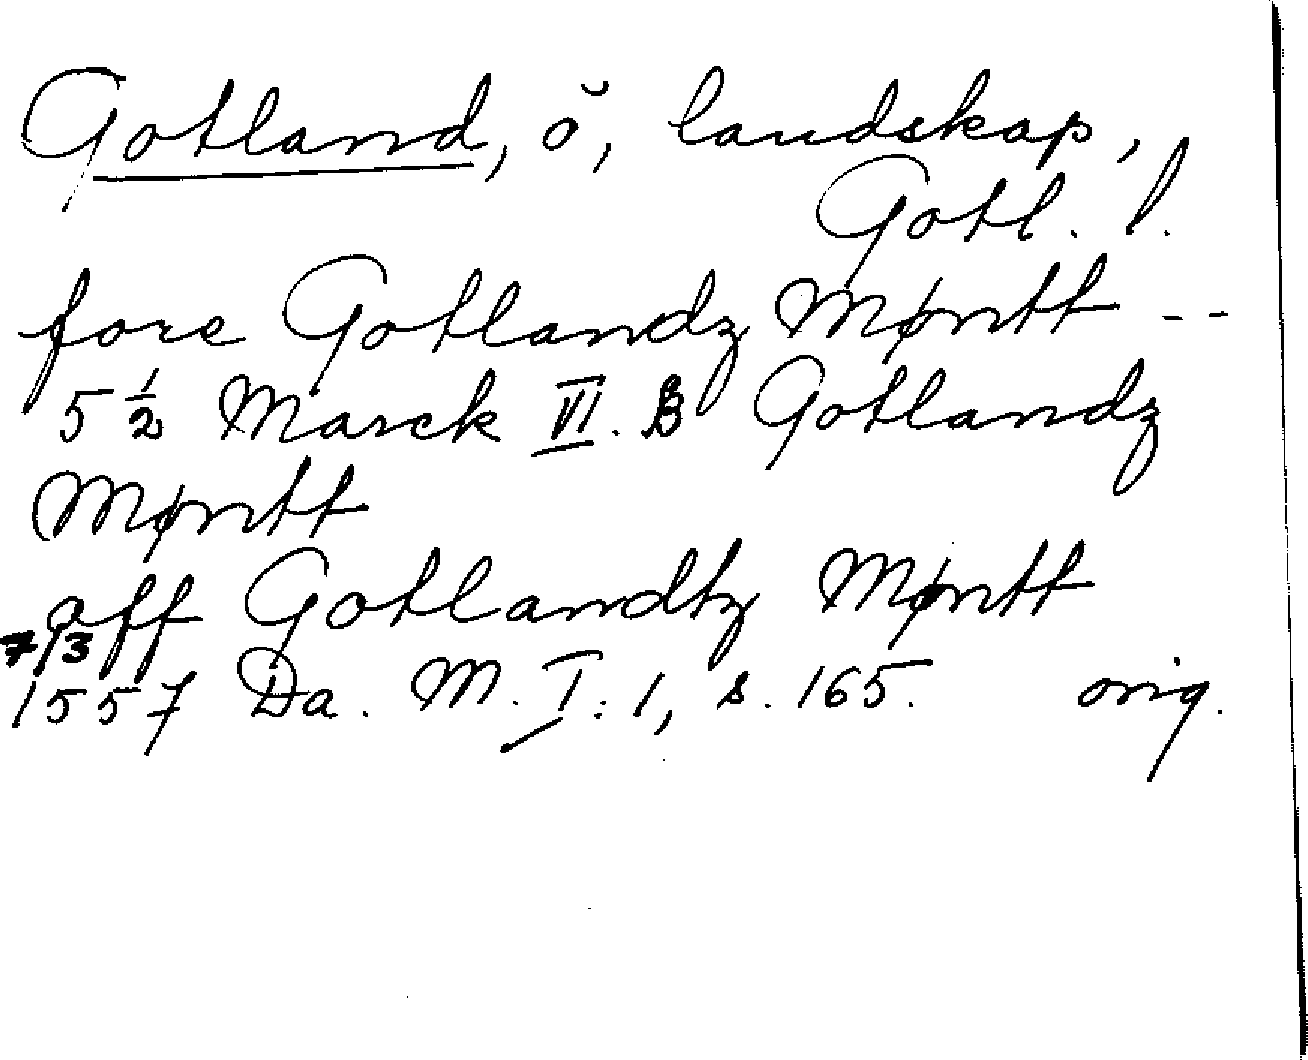 Gotland, ö, landskap,
Gotl. l.
fore Gotlandz Møntt --
5 ½ Marck VI. ß Gotlandz
Møntt
aff Gotlandtz Møntt
7/3
1557 Da. M. I: 1, s. 165. orig.